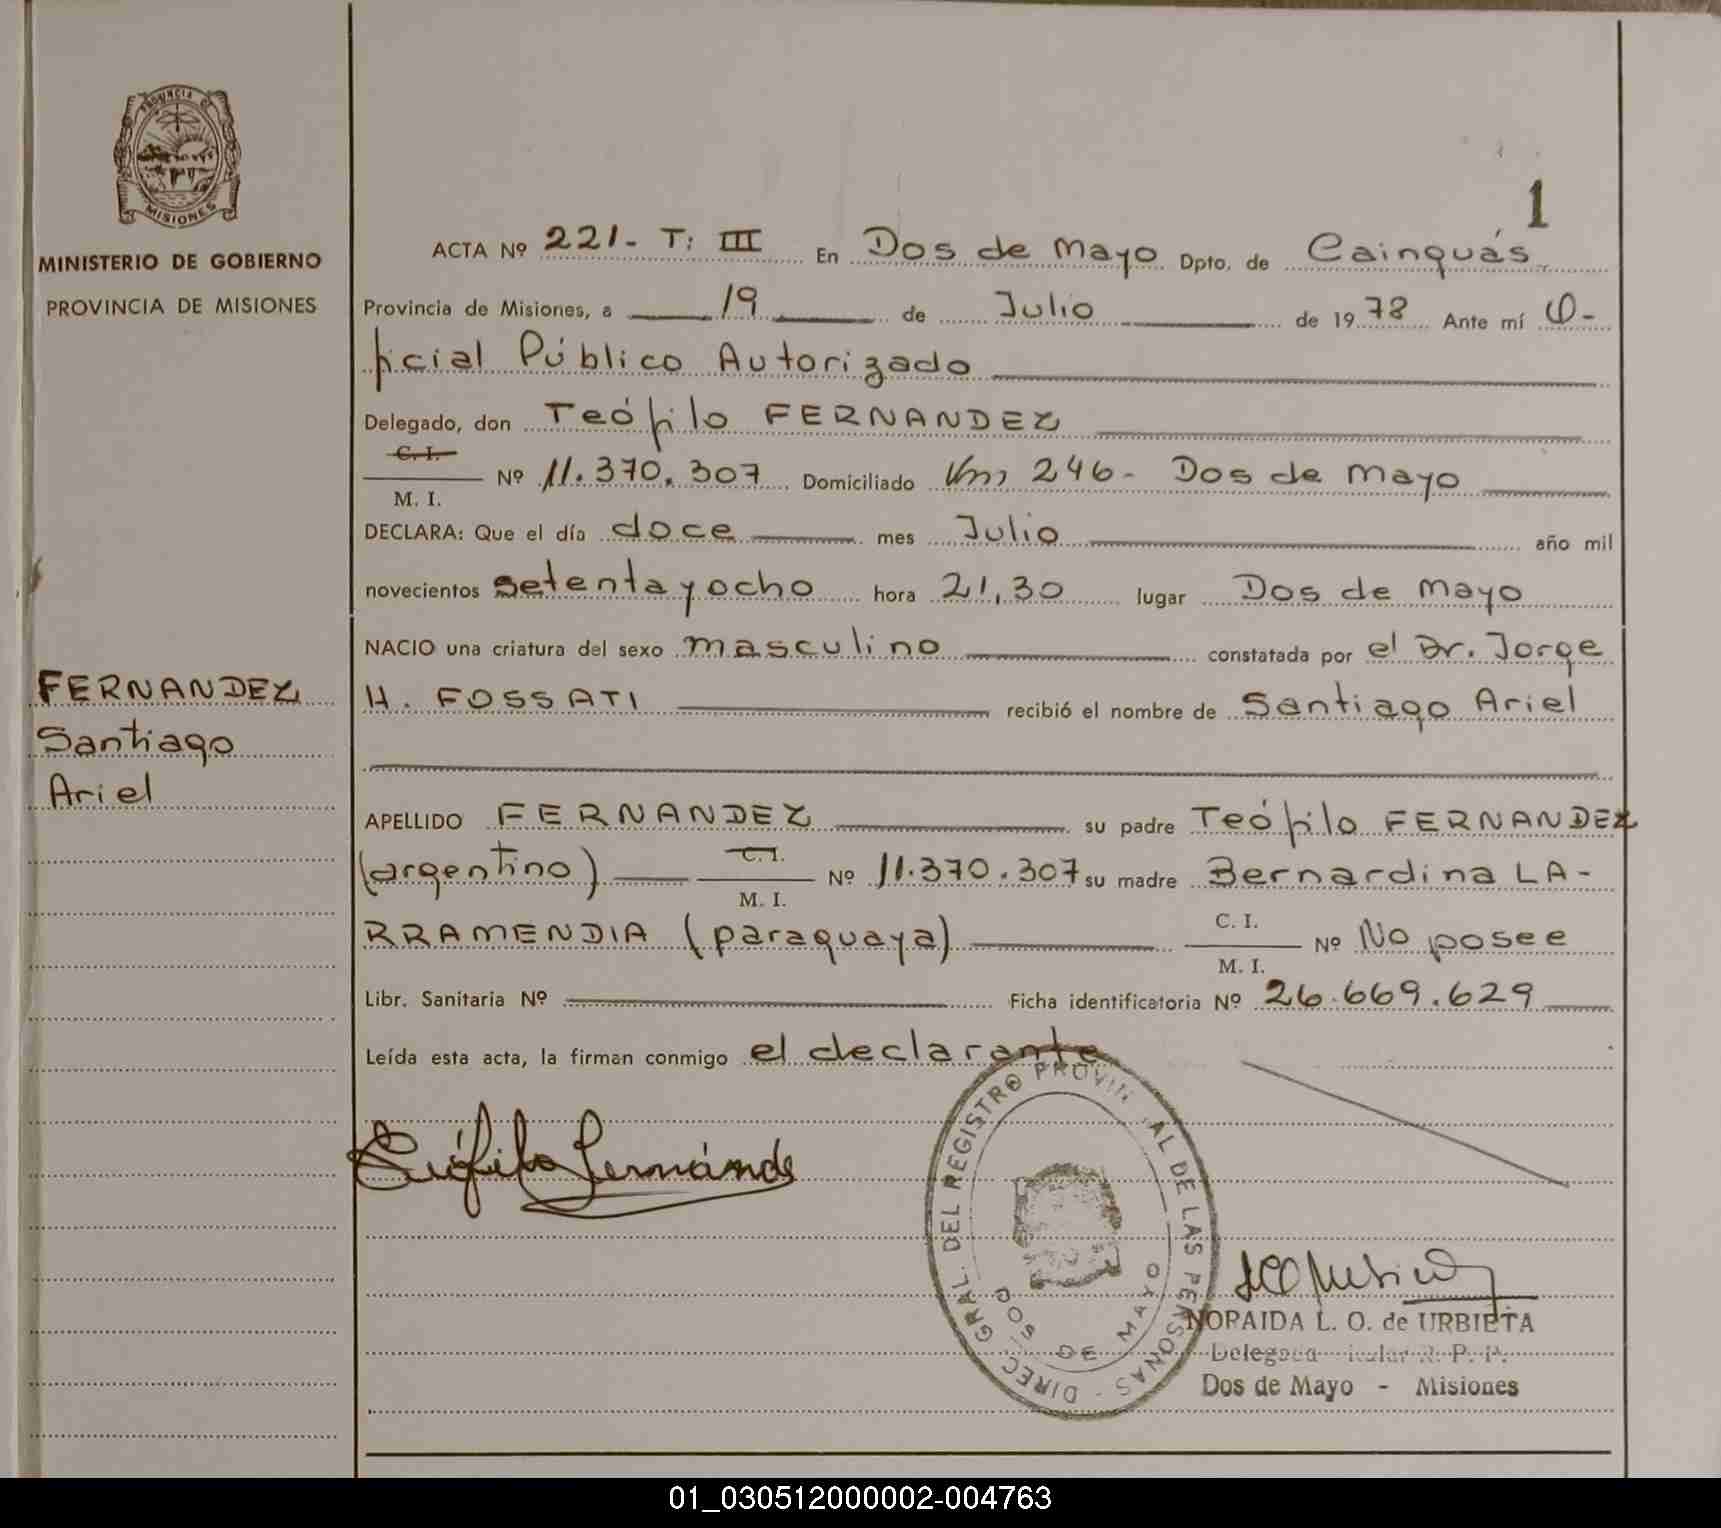 PROVINCIA DE
MISIONES
MINISTERIO DE GOBIERNO
PROVINCIA DE MISIONES
FERNANDEZ
Santiago
Ariel
1
ACTA Nº 221- T: III En Dos de Mayo Dpto. de Cainguás
Provincia de Misiones, a 19 de Julio de 1978 Ante mí O-
ficial Público Autorizado
Delegado, don Teófilo FERNANDEZ
C. I.
M. I.
Nº 11.370.307 Domiciliado Km 246- Dos de Mayo
DECLARA: Que el día doce mes Julio año mil
novecientos setenta y ocho hora 21,30 lugar Dos de Mayo
NACIO una criatura del sexo masculino constatada por el Dr. Jorge
H. FOSSATI recibió el nombre de Santiago Ariel
APELLIDO FERNANDEZ su padre Teófilo FERNANDEZ
(argentino) C. I. M. I. Nº 11.370.307 su madre Bernardina LA-
RRAMENDIA (paraguaya) C. I. M. I. Nº No posee
Libr. Sanitaria Nº Ficha identificatoria Nº 26.669.629
Leída esta acta, la firman conmigo el declarante
Teófilo Fernánde
DIREC. GRAL. DEL REGISTRO PROVIN AL DE LAS PERSONAS -
DOS DE MAYO
NORAIDA L. O. de URBIETA
Delegada R. P. P.
Dos de Mayo - Misiones
01_030512000002-004763